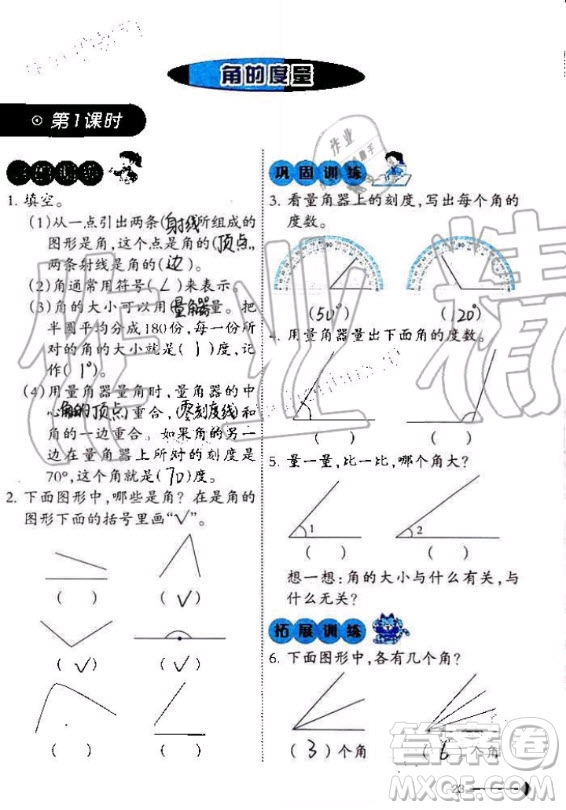 角的度量
第1课时
1. 填空。
(1)从一点引出两条(射线)所组成的
图形是角,这个点是角的(顶点),
两条射线是角的(边)。
(2)角通常用符号(∠)来表示。
(3)角的大小可以用(量角器)量。把
半圆平均分成180份,每一份所
对的角的大小就是(1)度,记
作(1°)。
(4)用量角器量角时,量角器的中
心(角的顶点)重合,(零刻度线)和
角的一边重合。如果角的另一
边在量角器上所对的刻度是
70°,这个角就是(70)度。
2. 下面图形中,哪些是角?在是角的
图形下面的括号里画“√”。
( ) (√)
(√) (√)
( ) ( )
巩固训练
3. 看量角器上的刻度,写出每个角的
度数。
(50°) (120°)
4. 用量角器量出下面角的度数。
( ) ( )
5. 量一量,比一比,哪个角大?
1 2
( ) ( )
想一想:角的大小与什么有关,与
什么无关?
拓展训练
6. 下面图形中,各有几个角?
(3)个角 (6)个角
23
作业精
答案圈
MXQE.COM